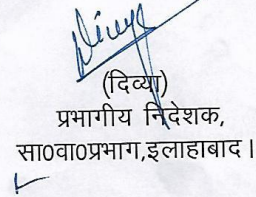 (दिव्या)
प्रभागीय निदेशक,
सा0वा0प्रभाग,इलाहाबाद।